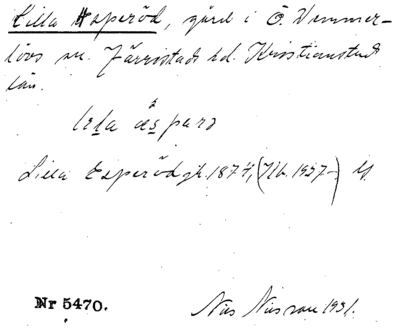 Lilla Esperöd, gård i Ö. Vemmer-
lövs sn. Järrestads hd. Kristianstads
län.
lɩla æspara
Lilla Esperöd gk. 1874, (Jlb. 1937-) U.
Nr 5470. Nils Nilsson 1931.